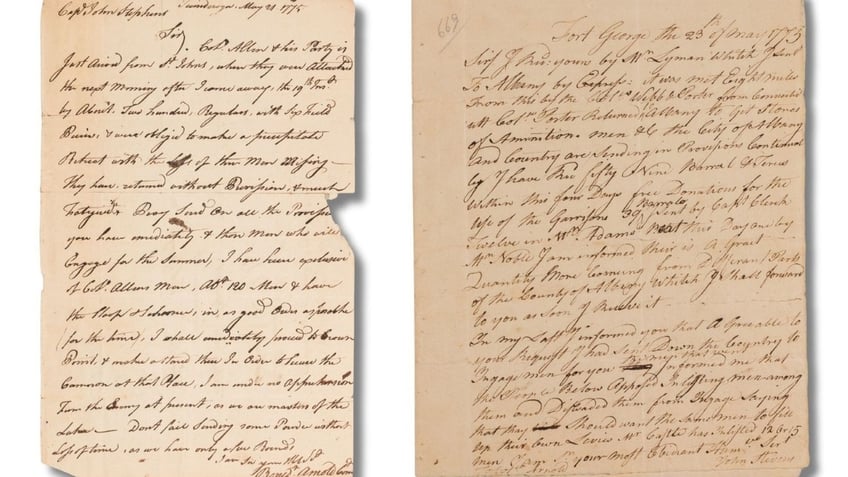 Capt John Stephens Ticonderoga May 21 1775
Sir
Colo. Allen & his Party is
Just Arived from St Johns, where they were Attacked
the next Morning after I come away, the 19th Inst
by About Two hundred, Regulars, with Six Field
Peices, & were obliged to make a precipitate
Retreat with the of three Men Missing
they have returned without Provision, & much
Fatigued Pray Send On all the Provision
you have imediately & thos Men who will
Engage for the Summer, I have here exclusive
of Colo. Allens Men, Abt 120 Men & have
the Sloop & Schooner, in as good Order as possible
for the time, I shall imediately proceed to Crown
Point, & make a Stand there In Order to Secure the
Cannon at that Place, I am under no Apprehension
from the Enemy at present, as we are masters of the
Lake Dont fail Sending some Powder without
Loss of time, as we have only a few Rounds
I am Sir your
Arnold
669
Fort George the 23th of may 1775
Sir I yours by Mr Lyman Which I Sent
To Albany by Express it was met Eight miles
From this by the Webb & Porter from Connecticut
Colo. Porter Returned Albany to Get Stores
of Ammunition men &c the City of Albany
and Country are Sending in Provisions Continual
ly I have fifty Nine Barral &
Within this four Days free Donations for the
use of the Garrisons 39 Barrals Sent by Capt
Twelve in Mr Adams this Day and by
Mr Noble I am informed their is A Great
Quantity More Comeing from Parts
of the County of Albany Which I Shall forward
to you as soon I Receive it
In my Last I informed you that A Greable to
your Request I had Sent Down the Country to
Engage men for you informed me that
the Below Opposed Inlisting men among
them and Diswaded them from Ingage Saying
that they Should want the Same men to fill
up their Own Levies Mr Castle has Inlisted 12 or 15
men I am Sir your most Obediant
Arnold John Stevens